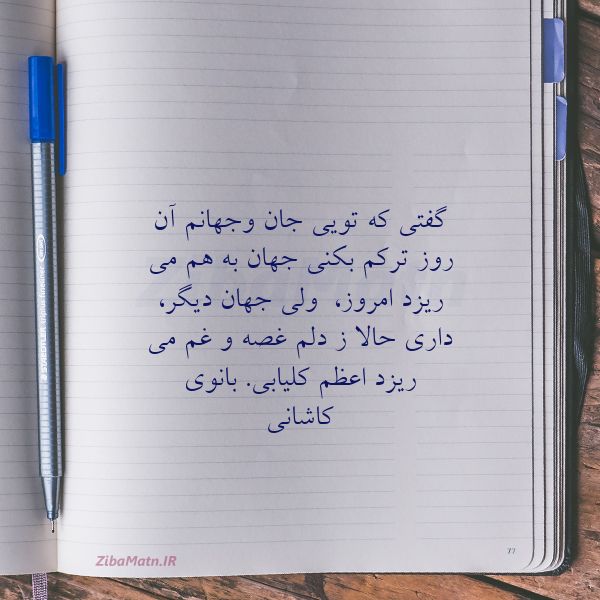 گفتی که تویی جان وجهانم آن
روز ترکم بکنی جهان به هم می
ریزد امروز، ولی جهان دیگر،
داری حالا ز دلم غصه و غم می
ریزد اعظم کلیابی. بانوی
کاشانی
77
ZibaMatn.IR